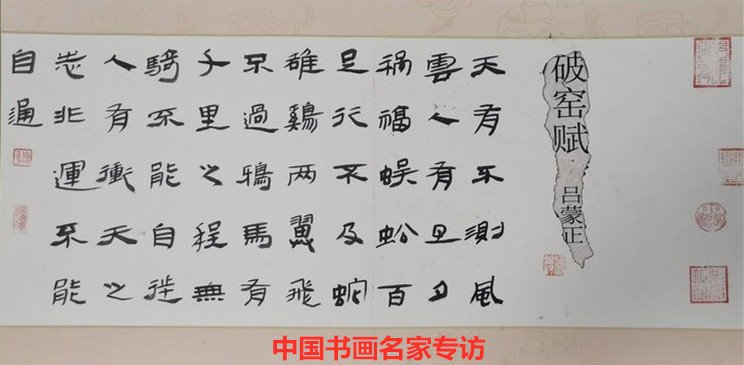 破窑赋
吕蒙正
天有不測風
雲人有旦夕
禍福蜈蚣百
足行不及蛇
雄鷄两翼飛
不過鴉馬有
千里之程無
騎不能自往
人有衝天之
志非運不能
自通
中国书画名家专访